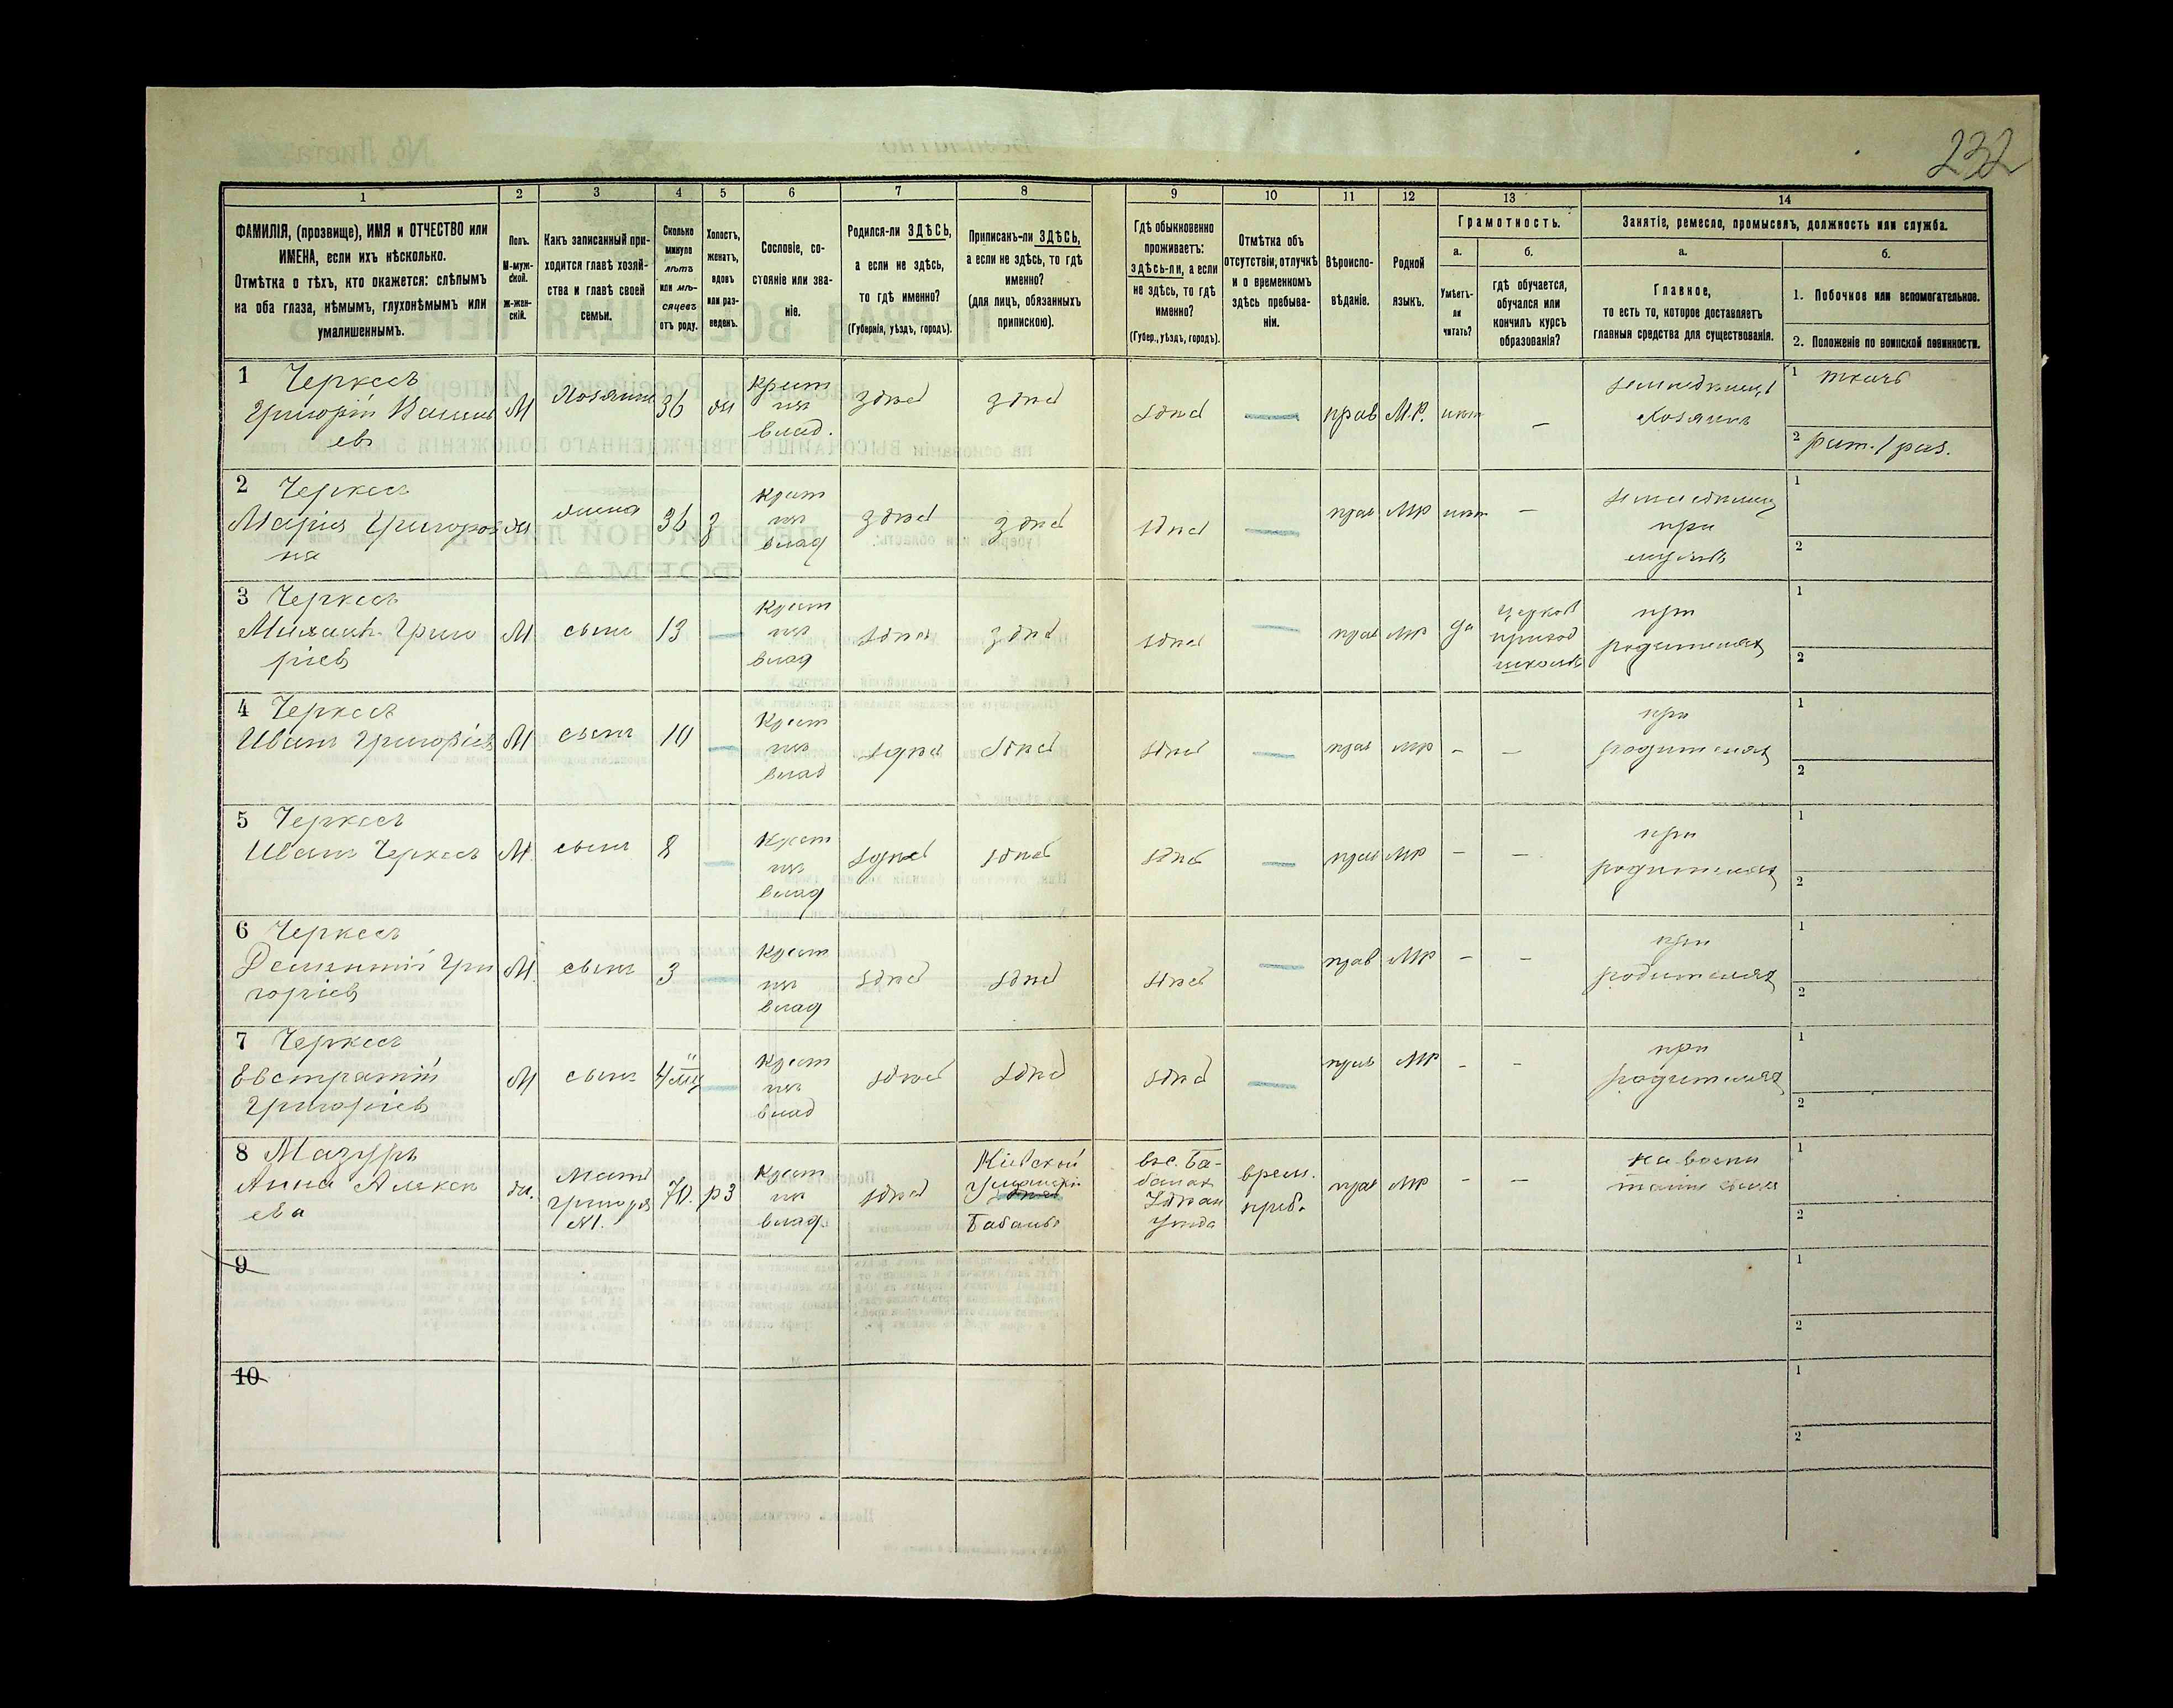 232
1
2
3
4
5
6
7
8
9
10
11
12
13
14
ФАМИЛІЯ, (прозвище), ИМЯ и ОТЧЕСТВО или
ИМЕНА, если ихъ нѣсколько.
Отмѣтка о тѣхъ, кто окажется: слѣпымъ
на оба глаза, нѣмымъ, глухонѣмымъ или
умалишеннымъ.
Полъ.
М-муж-
ской.
Ж-жен-
скій.
Какъ записанный при-
ходится главѣ хозяй-
ства и главѣ своей
семьи.
Сколько
минуло
лѣтъ
или мѣ-
сяцевъ
отъ роду.
Холостъ,
женатъ,
вдовъ
или раз-
веденъ.
Сословіе, со-
стояніе или зва-
ніе.
Родился-ли ЗДѢСЬ,
а если не здѣсь,
то гдѣ именно?
(Губернія, уѣздъ, городъ).
Приписанъ-ли ЗДѢСЬ,
а если не здѣсь, то гдѣ
именно?
(для лицъ, обязанныхъ
припискою).
Гдѣ обыкновенно
проживаетъ:
здѣсь-ли, а если
не здѣсь, то гдѣ
именно?
(Губер., уѣздъ, городъ).
Отмѣтка объ
отсутствіи, отлучкѣ
и о временномъ
здѣсь пребыва-
ніи.
Вѣроиспо-
вѣданіе.
Родной
языкъ.
Грамотность.
а.
Умѣетъ-
ли
читать?
б.
гдѣ обучается,
обучался или
кончилъ курсъ
образованія?
Занятіе, ремесло, промыселъ, должность или служба.
а.
Главное,
то есть то, которое доставляетъ
главныя средства для существованія.
б.
1. Побочное или вспомогательное.
2. Положеніе по воинской повинности.
1 Черкесъ
Григорій
М
Хозяинъ
36
жн
Крест
изъ
влад.
здѣсь
здѣсь
здѣсь
—
прав
М.Р.
нѣт
—
Хозяинъ
1 ткачъ
2 рат. 1 раз.
2 Черкесъ
Марія Григоров
на
жн
жена
36
з
Крест
изъ
влад
здѣсь
здѣсь
здѣсь
—
прав
МР
нѣт
—
при
мужѣ
1
2
3 Черкесъ
Михаилъ Григо
ріевъ
М
сынъ
13
—
Крест
изъ
влад
здѣсь
здѣсь
здѣсь
—
прав
МР
да
церков
приход
школѣ
при
родителяхъ
1
2
4 Черкесъ
Иванъ Григоріевъ
М
сынъ
10
—
Крест
изъ
влад
здѣсь
здѣсь
здѣсь
—
прав
МР
—
—
при
родителяхъ
1
2
5 Черкесъ
Иванъ Черкесъ
М.
сынъ
8
—
Крест
изъ
влад
здѣсь
здѣсь
здѣсь
—
прав
МР
—
—
при
родителяхъ
1
2
6 Черкесъ
Дементій Гри
горіевъ
М.
сынъ
3
—
Крест
изъ
влад
здѣсь
здѣсь
здѣсь
—
прав
МР
—
—
при
родителяхъ
1
2
7 Черкесъ
Евстратій
Григоріевъ
М
сынъ
4 мц
—
Крест
изъ
влад
здѣсь
здѣсь
здѣсь
—
прав
МР
-
-
при
родителяхъ
1
2
8 Мазуръ
Анна Алексѣ
ева
жн.
Мать
Григорія
№1.
70.
Крест
из
влад.
здѣсь
Кіевской
Уманскій
Бабанъ
въ с. Ба-
банах
Уѣзда
врем.
преб.
прав
МР
—
—
1
2
9
1
2
10
1
2